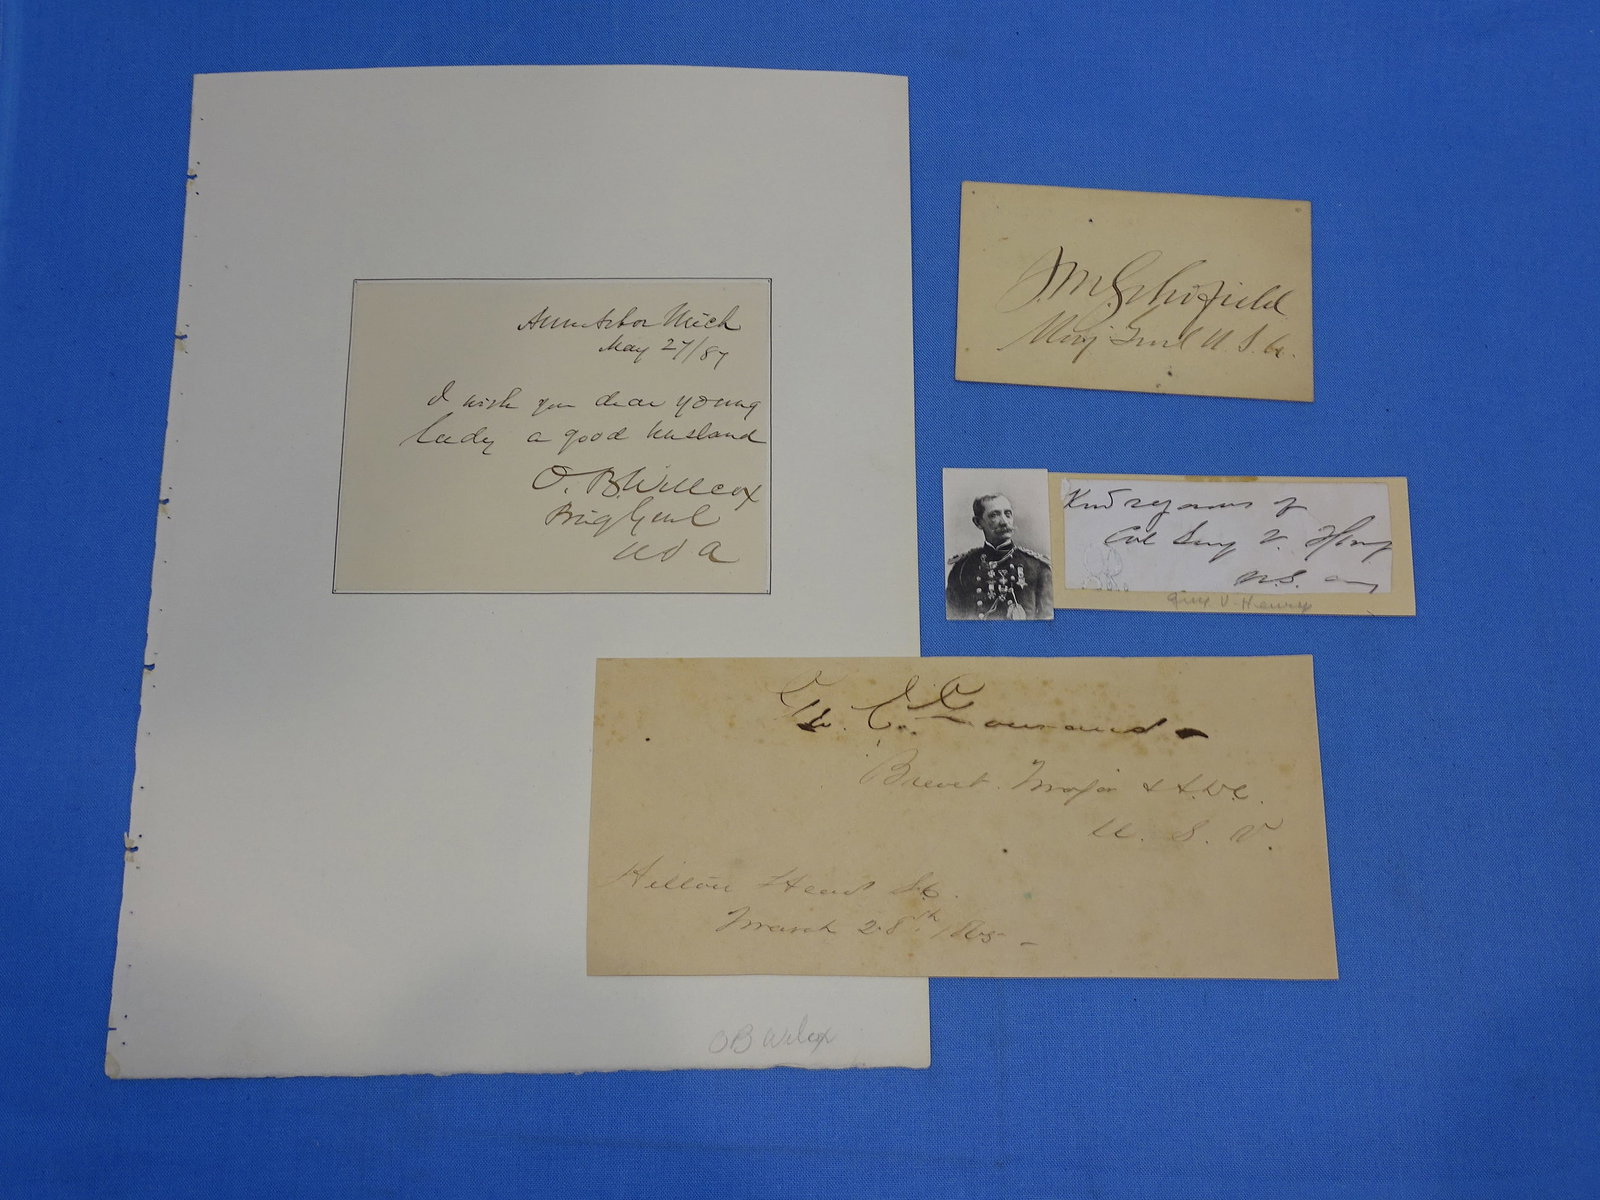 Ann Arbor Mich
May 27/87
I wish you dear young
lady a good husband
O. B. Willcox
Brig Genl
U S A
OB Wilcox
J. M. Schofield
Maj. Genl U. S. A.
Kind regards of
Col Guy V. Henry
U.S. Army
Guy V. Henry
Geo. E. Gouraud
Brevet Major & A.D.C.
U. S. V.
Hilton Head S.C.
March 28th 1865